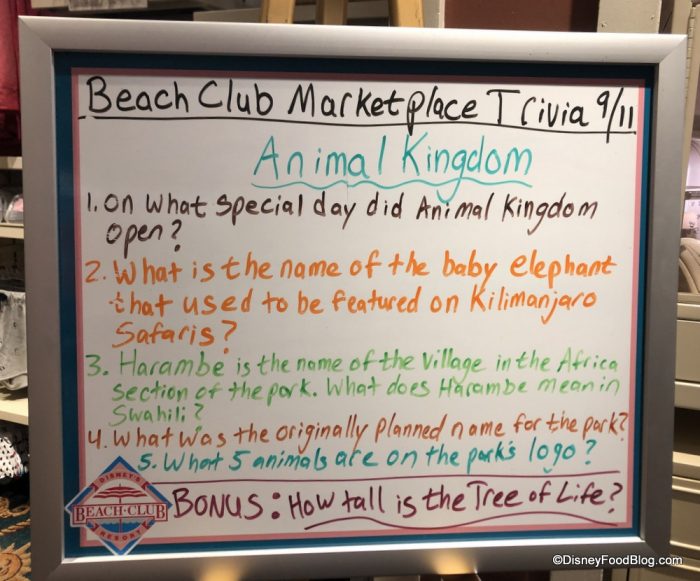 Beach Club Marketplace Trivia 9/11
Animal Kingdom
1. On what special day did Animal Kingdom
open?
2. What is the name of the baby elephant
that used to be featured on Kilimanjaro
Safaris?
3. Harambe is the name of the Village in the Africa
section of the park. What does Harambe mean in
Swahili?
4. What was the originally planned name for the park?
5. What 5 animals are on the park's logo?
DISNEY'S
BEACH·CLUB
RESORT
BONUS: How tall is the Tree of Life?
©DisneyFoodBlog.com